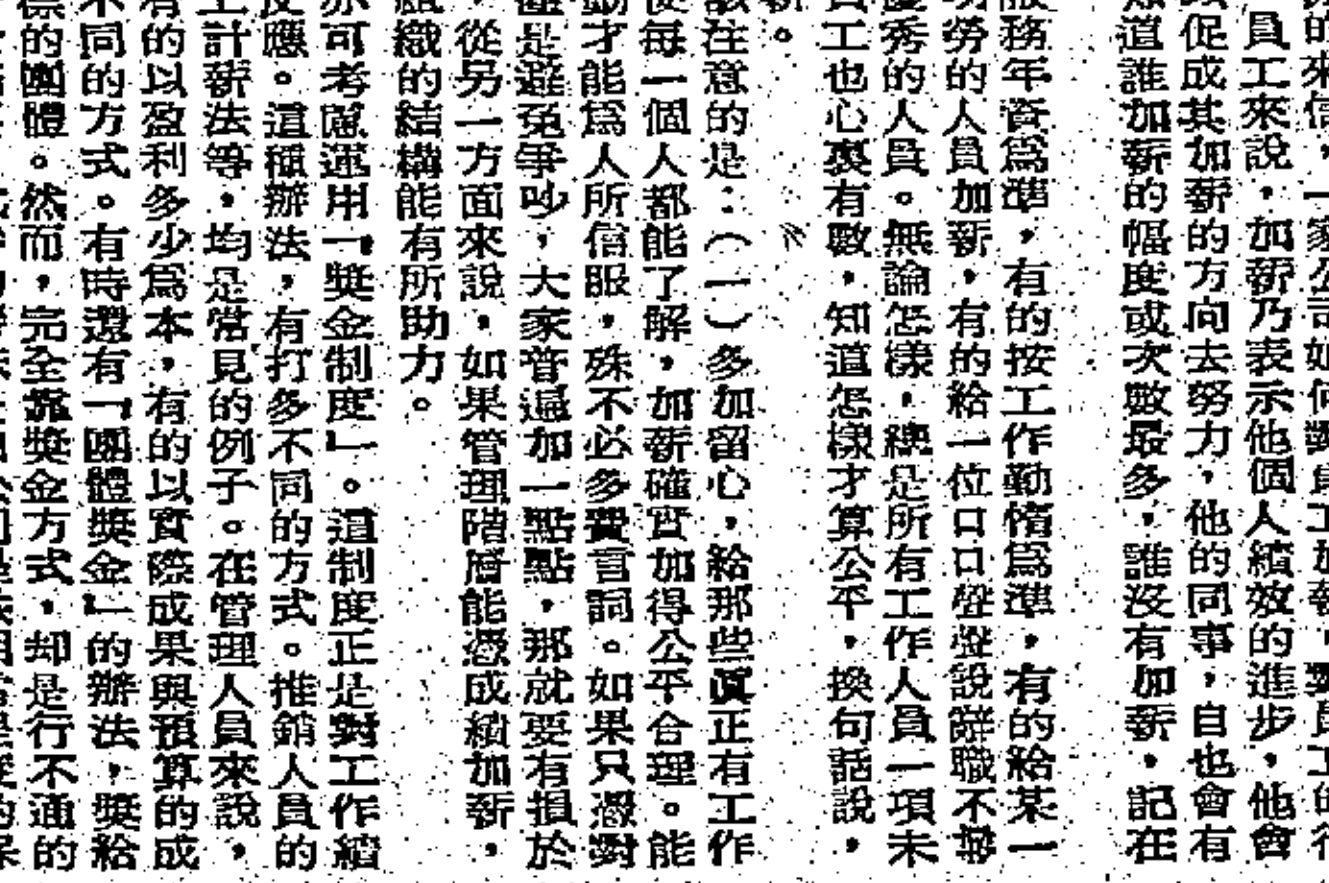 的來信，一家公司如何對員工加薪，對員工的行
員工來說，加薪乃表示他個人績效的進步，他會
促成其加薪的方向去努力，他的同事，自也會有
道誰加薪的幅度或次數最多，誰沒有加薪，記在
服務年資爲準，有的按工作勤惰爲準，有的給某一
功勞的人員加薪，有的給一位口口聲聲說辭職不幹
優秀的人員。無論怎樣，總是所有工作人員一項未
員工也心裏有數，知道怎樣才算公平，換句話說，
。
該注意的是：（一）多加留心，給那些眞正有工作
使每一個人都能了解，加薪確實加得公平合理。能
動才能爲人所信服，殊不必多費言詞。如果只憑對
是避免爭吵，大家普遍加一點點，那就要有損於
，從另一方面來說，如果管理階層能憑成績加薪，
組織的結構能有所助力。
亦可考慮運用「獎金制度」。這制度正是對工作績
反應。這種辦法，有打多不同的方式。推銷人員的
上計薪法等，均是常見的例子。在管理人員來說，
有的以盈利多少爲本，有的以實際成果與預算的成
不同的方式。有時還有「團體獎金」的辦法，獎給
標的團體。然而，完全靠獎金方式，却是行不通的